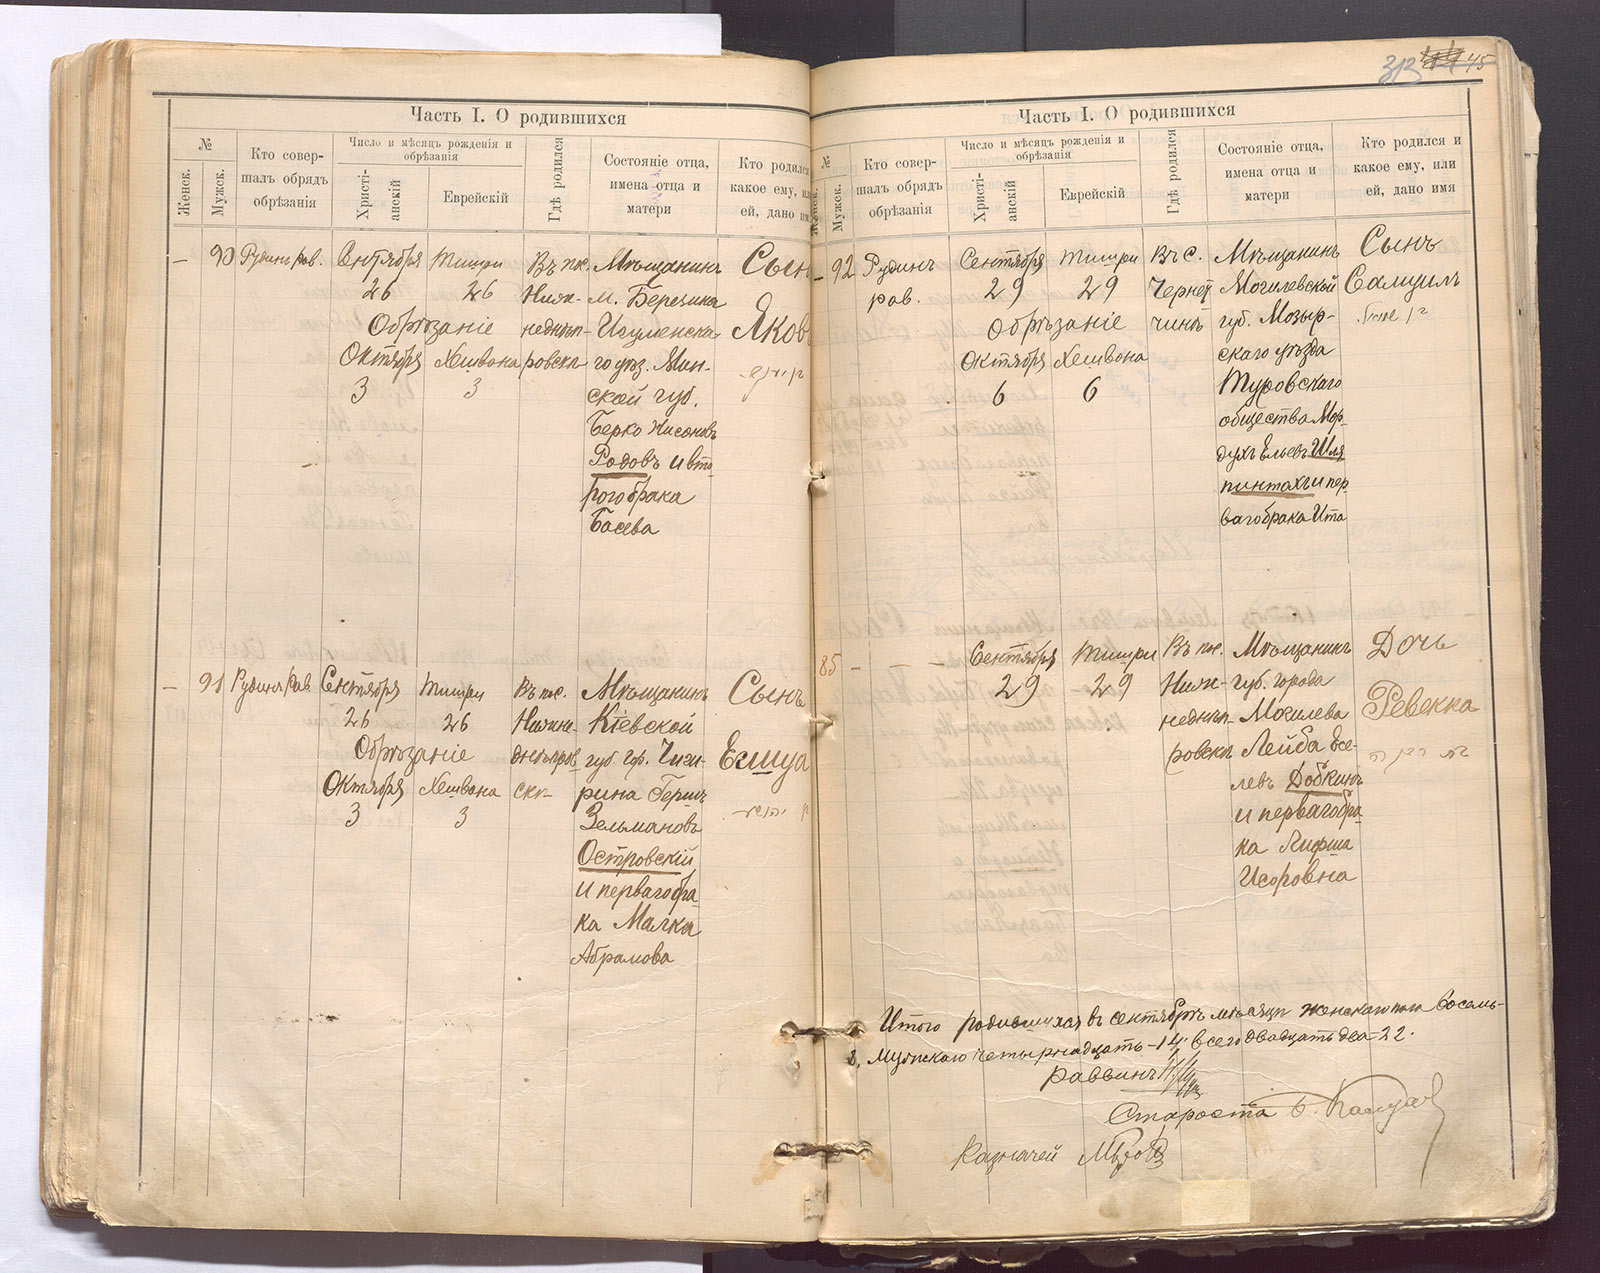 Часть I. О родившихся
№
Женск.
Мужск.
Кто совер-
шалъ обрядъ
обрѣзанія
Число и мѣсяцъ рожденія и
обрѣзанія
Христі-
анскій
Еврейскій
Гдѣ родился
Состояніе отца,
имена отца и
матери
Кто родился
какое ему, или
ей, дано имя
– 90
Рудинъ рав.
Сентября
26
Тишри
26
Обрѣзаніе
Октября
3
Хешвона
3
Въ пос.
Нижн-
неднѣп-
ровскѣ
Мѣщанинъ
м. Березина
Игуменска-
го уѣз. Мин-
ской губ.
Берко Нисоновъ
Родовъ и вто
рого брака
Басева
Сынъ
Яковъ
– 91
Рудинъ Рав.
Сентября
26
Тишри
26
Обрѣзаніе
Октября
3
Хешвона
3
Въ пос.
Нижне-
днѣпров
скѣ-
Мѣщанинъ
Кіевской
губ. гор. Чиги-
рина Гершъ
Зельмановъ
Островскій
и перваго бра-
ка Малка
Абрамова
Сынъ
Ешуа
313 45
Часть I. О родившихся
№
Женск.
Мужск.
Кто совер-
шалъ обрядъ
обрѣзанія
Число и мѣсяцъ рожденія и
обрѣзанія
Христі-
анскій
Еврейскій
Гдѣ родился
Состояніе отца,
имена отца и
матери
Кто родился и
какое ему, или
ей, дано имя
– 92
Рудинъ
рав.
Сентября
29
Тишри
29
Обрѣзаніе
Октября
6
Хешвона
6
Въ С.
Чернет
чинѣ
Мѣщанинъ
Могилевской
губ. Мозыр-
скаго уѣзда
Туровскаго
общества Мор-
духъ Ельевъ Шля
пинтохъ и пер
ваго брака Ита
Сынъ
Самуилъ
85 – – –
Сентября
29
Тишри
29
Въ пос.
Нижн-
неднѣп-
ровскѣ
Мѣщанинъ
губ. города
Могилева
Лейба Есе-
левъ Добкинъ
и перваго бра-
ка Лифша
Исоровна
Дочь
Ревекка
Итого родившихся въ сентябрѣ мѣсяцѣ женскаго пола восемь-
8, Мужскаго четырнадцать-14, всего двадцать два-22.
раввинъ
Староста
Казначей